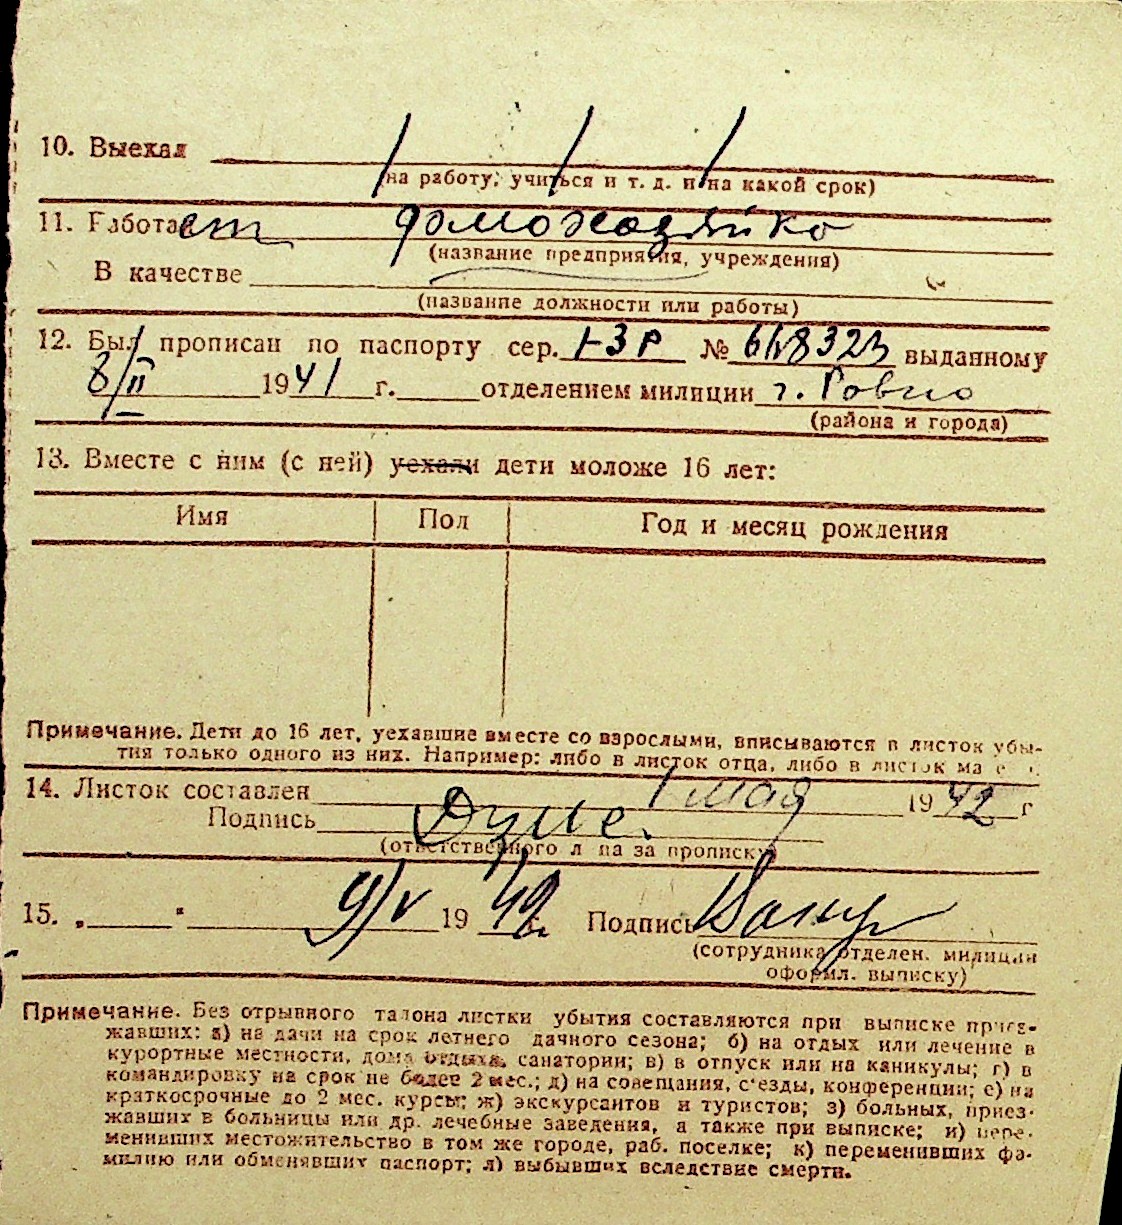 10. Выехал / / /
(на работу, учиться и т. д. и на какой срок)
11. Работает домохозяйко
(название предприятия, учреждения)
В качестве
(название должности или работы)
12. Был прописан по паспорту сер. № выданному
8/II 1941 г. отделением милиции г. Ровно
(района и города)
13. Вместе с ним (с ней) уехали дети моложе 16 лет:
Имя Пол Год и месяц рождения
Примечание. Дети до 16 лет, уехавшие вместе со взрослыми, вписываются в листок убы-
тия только одного из них. Например: либо в листок отца, либо в листок
14. Листок составлен 1 мая 1942 г
Подпись
(ответственного за прописку)
15. „ " 9/V 1942 г. Подпись
(сотрудника отделен. милиции
оформл. выписку)
Примечание. Без отрывного талона листки убытия составляются при выписке приез-
жавших: а) на дачи на срок летнего дачного сезона; б) на отдых или лечение в
курортные местности, дома отдыха, санатории; в) в отпуск или на каникулы; г) в
командировку на срок не более 2 мес.; д) на совещания, с'езды, конференции; е) на
краткосрочные до 2 мес. курсы; ж) экскурсантов и туристов; з) больных, приез-
жавших в больницы или др. лечебные заведения, а также при выписке; и) пере-
менивших местожительство в том же городе, раб. поселке; к) переменивших фа-
милию или обменявших паспорт; л) выбывших вследствие смерти.